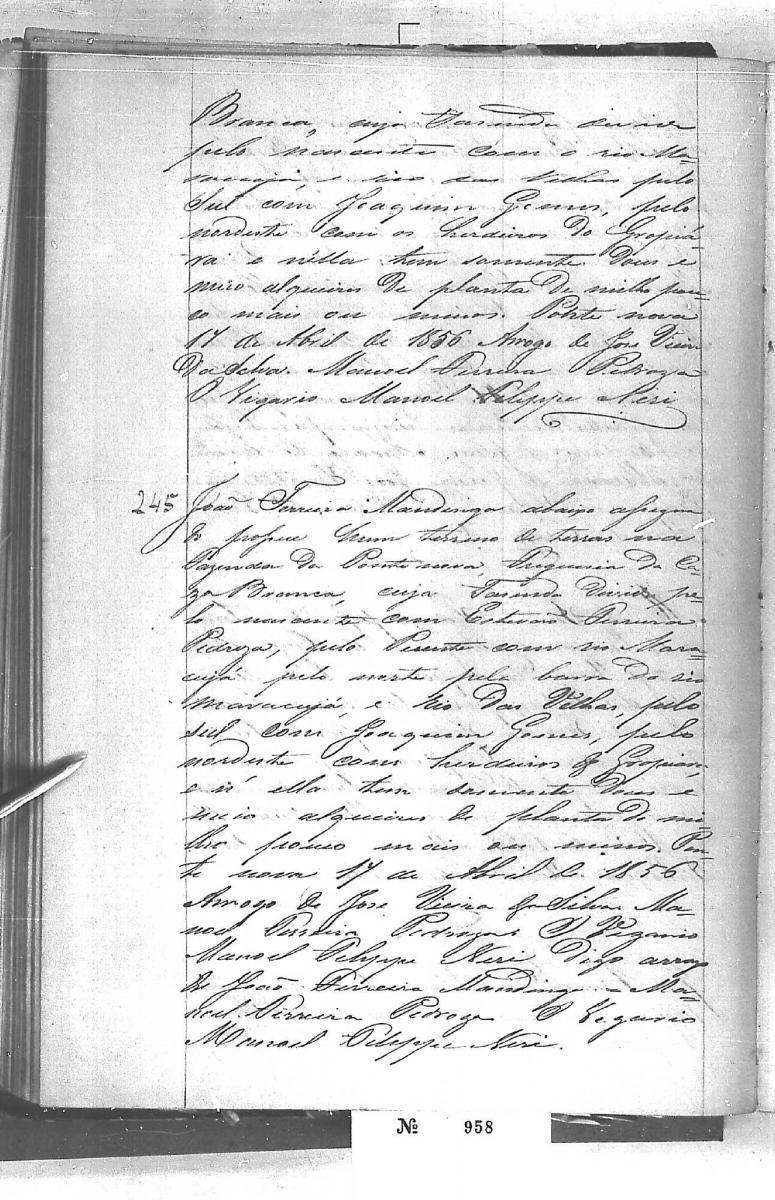 Branca, cuja Fazenda divide
pelo nascente com o rio Ma=
racujá, e rio das Velhas pelo
Sul com Joaquim Gomes, pelo
nordeste com os herdeiros do Gropiá
ra e n'ella tem somente dous e
meio alqueires de planta de milho pou=
co mais ou menos. Ponte nova
17 de Abril de 1856 Arrogo de José Vieira
da Silva. Manoel Ferreira Pedroza
O Vigario Manoel Felippe Neri
245 João Ferreira Mandinga abaixo assigna
do possue hum terreno de terras na
Fazenda da Ponte nova Freguesia da Ca=
za Branca, cuja Fazenda divide pe=
lo nascente com Estevão Ferreira
Pedroza, pelo Poente com rio Mara=
cujá pelo norte pela barra do rio
maracujá, e rio das Velhas, pelo
sul com Joaquim Gomes, pelo
nordeste com herdeiros do Gropiara,
e n' ella tem somente dous e
meio alqueires de planta de mi=
lho pouco mais ou menos. Pon=
te nova 17 de Abril de 1856
Arrogo de José Vieira da Silva Ma=
noel Ferreira Pedroza O Vigario
Manoel Felippe Neri Digo arrogo
de João Ferreira Mandinga = Ma=
noel Ferreira Pedroza O Vigario
Manoel Felippe Neri.
Nº 958